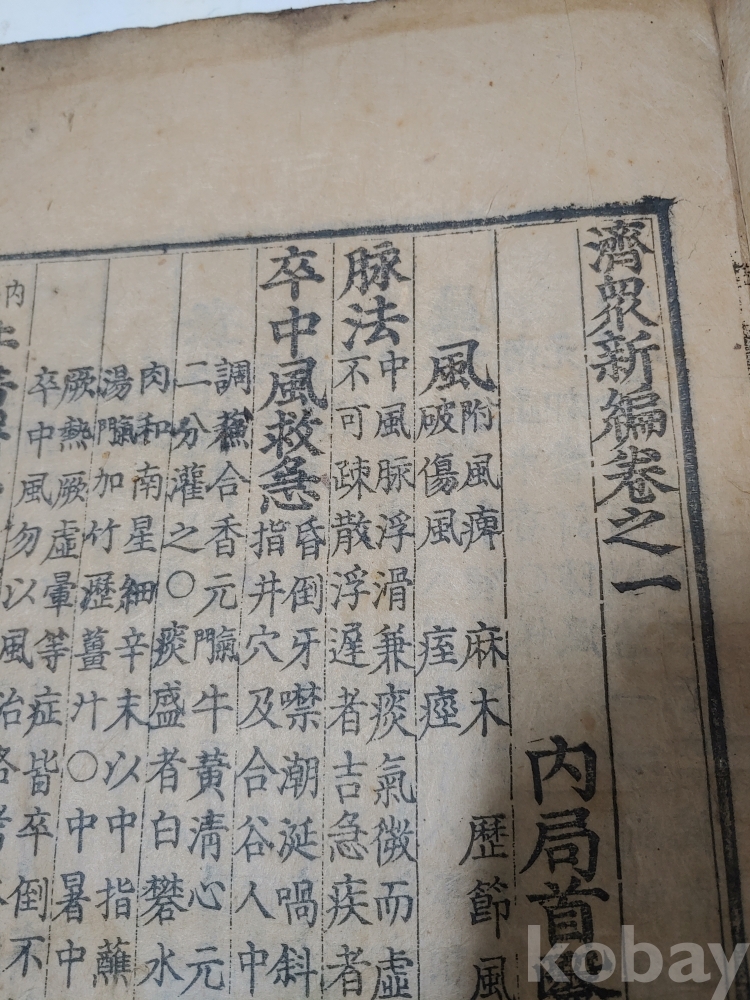 濟衆新編卷之一
內局首
風 附風痺 麻木 歷節風
破傷風 痓痙
脉法 中風脉浮滑兼痰氣微而虛
不可疎散浮遲者吉急疾者
卒中風救急 昏倒牙噤潮涎喎斜
指井穴及合谷人中
調蘓合香元 牛黃淸心元
二分灌之〇痰盛者白礬水
肉和南星細辛末以中指蘸
湯 加竹瀝薑汁〇中暑中
厥熱厥虛暈等症皆卒倒不
卒中風勿以風治
內
kobay